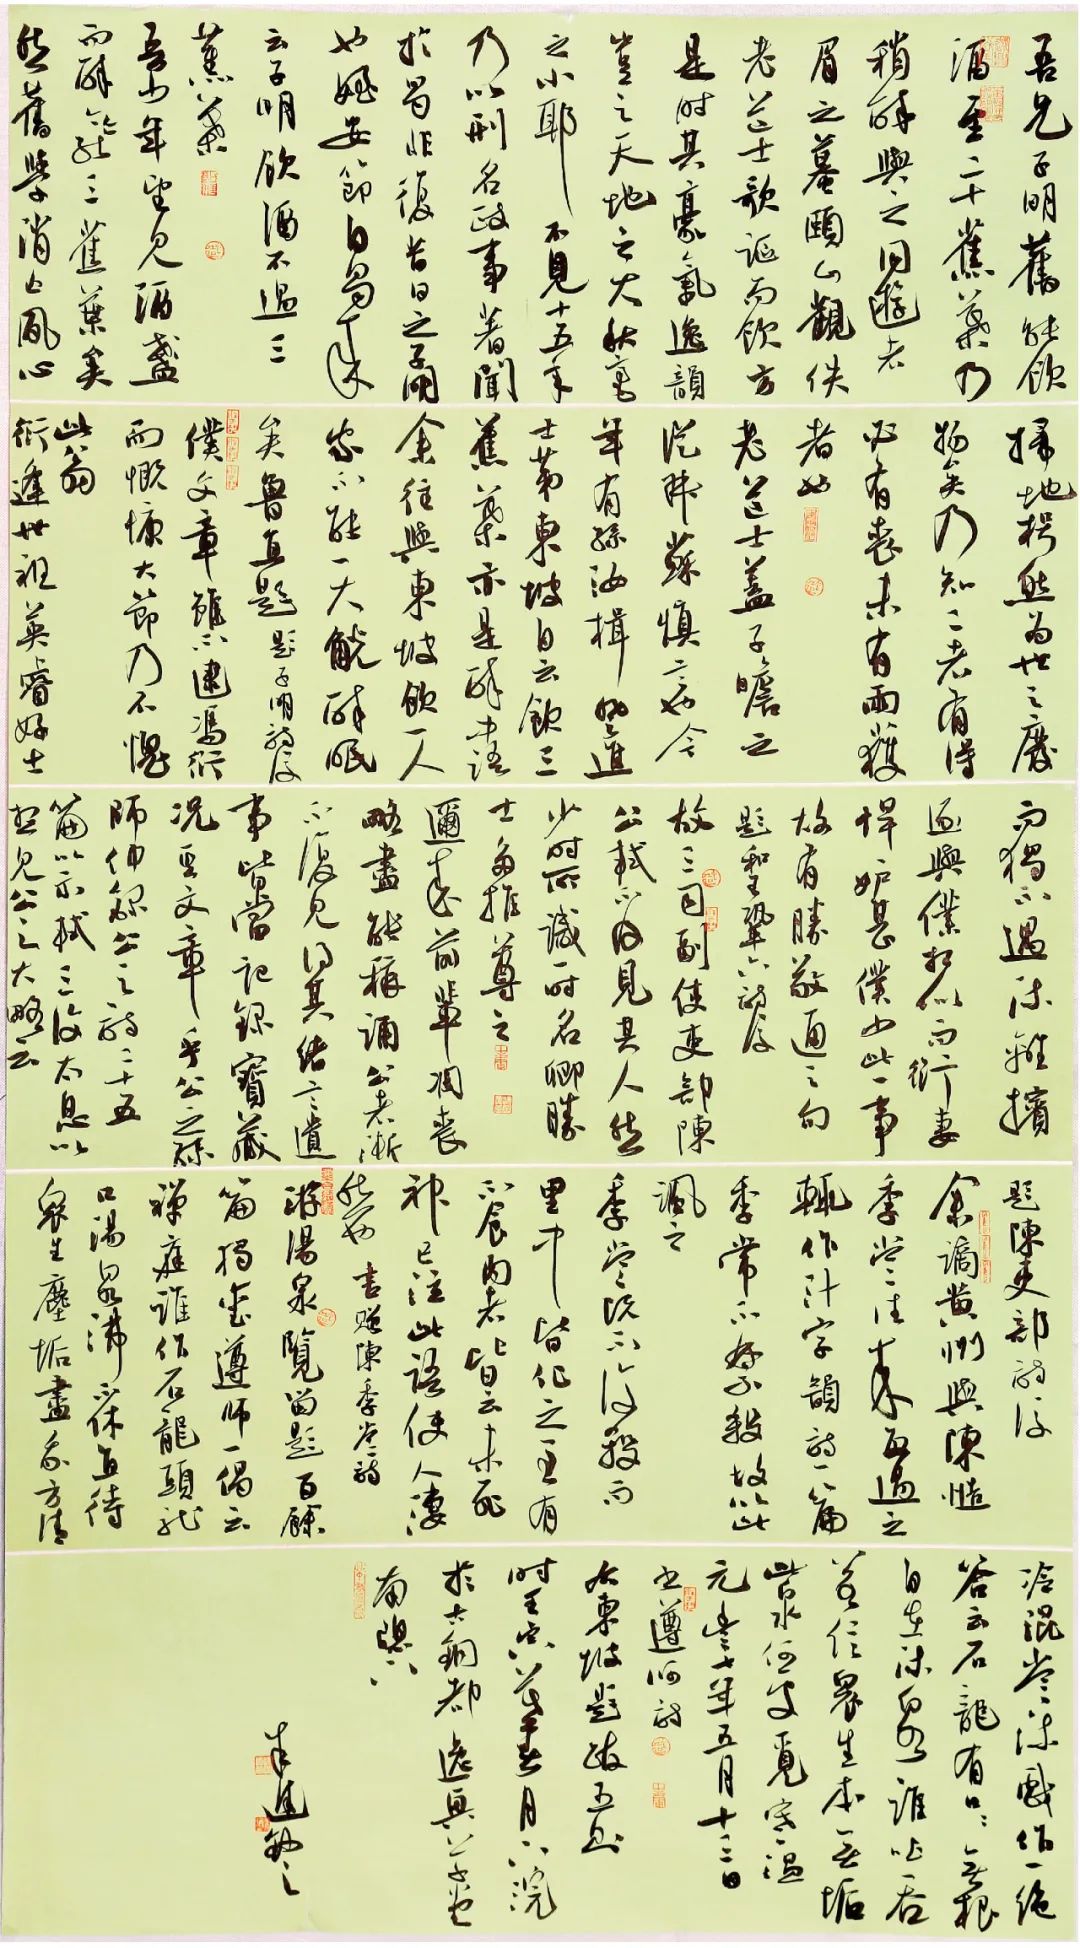 吾兄子明舊能飲
酒至二十蕉葉乃
稍醉與之同遊者
眉之蟇頤山觀侯
老道士歌謳而飲方
是時其豪氣逸韻
豈知天地之大秋毫
之小耶 不見十五年
乃以刑名政事著聞
於蜀非復昔日之子明
也姪安節自蜀來
云子明飲酒不過三
蕉葉
吾少年望見酒盞
而醉今亦能三蕉葉矣
然舊學消亡夙心
掃地枵然為世之廢
物矣乃知二者有得
必有喪未有兩獲
者也
老道士蓋子瞻之
從叔蘇慎言也今
年有孫汝楫登進
士第東坡自云飲三
蕉葉亦是醉中語
余往與東坡飲一人
家不能一大觥醉眠
矣魯直題 題子明詩後
僕文章雖不逮馮衍
而慨慷大節乃不愧
此翁
衍逢世祖英睿好士
而獨不遇流離擯
逐與僕相似而衍妻
悍妒甚僕少此一事
故有勝敬通之句
題和王鞏六詩後
故三司副使吏部陳
公軾不及見其人然
少時所識一時名卿勝
士多推尊之
邇來前輩凋喪
略盡能稱誦公者漸
不復見得其緒言遺
事皆當記錄寶藏
況其文章乎公之孫
師仲錄公之詩二十五
篇以示軾三復太息以
想見公之大略云
題陳吏部詩後
余謫黃州與陳慥
季常往來每過之
輒作汁字韻詩一篇
季常不禁殺故以此
諷之
季常既不復殺而
里中皆化之至有
不食肉者皆云未死
神已泣此語使人淒
然也 書贈陳季常詩
游湯泉覽留題百餘
篇獨愛遵師一偈云
禪庭誰作石龍頭龍
口湯泉沸不休直待
眾生塵垢盡我方清
冷混常流戲作一絕
答云石龍有口口無根
自在流泉誰吐吞
若信眾生本無垢
此泉何處覓寒溫
元豐七年五月十三日
書遵師詩
右東坡題跋五則